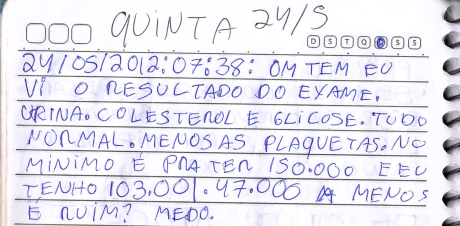 QUINTA 24/5
D S T Q Q S S
24/05/2012:07:38: ONTEM EU
VI O RESULTADO DO EXAME.
URINA. COLESTEROL E GLICOSE. TUDO
NORMAL. MENOS AS PLAQUETAS. NO
MÍNIMO É PRA TER 150.000 E EU
TENHO 103.001. 47.000 A MENOS
É RUIM? MEDO.